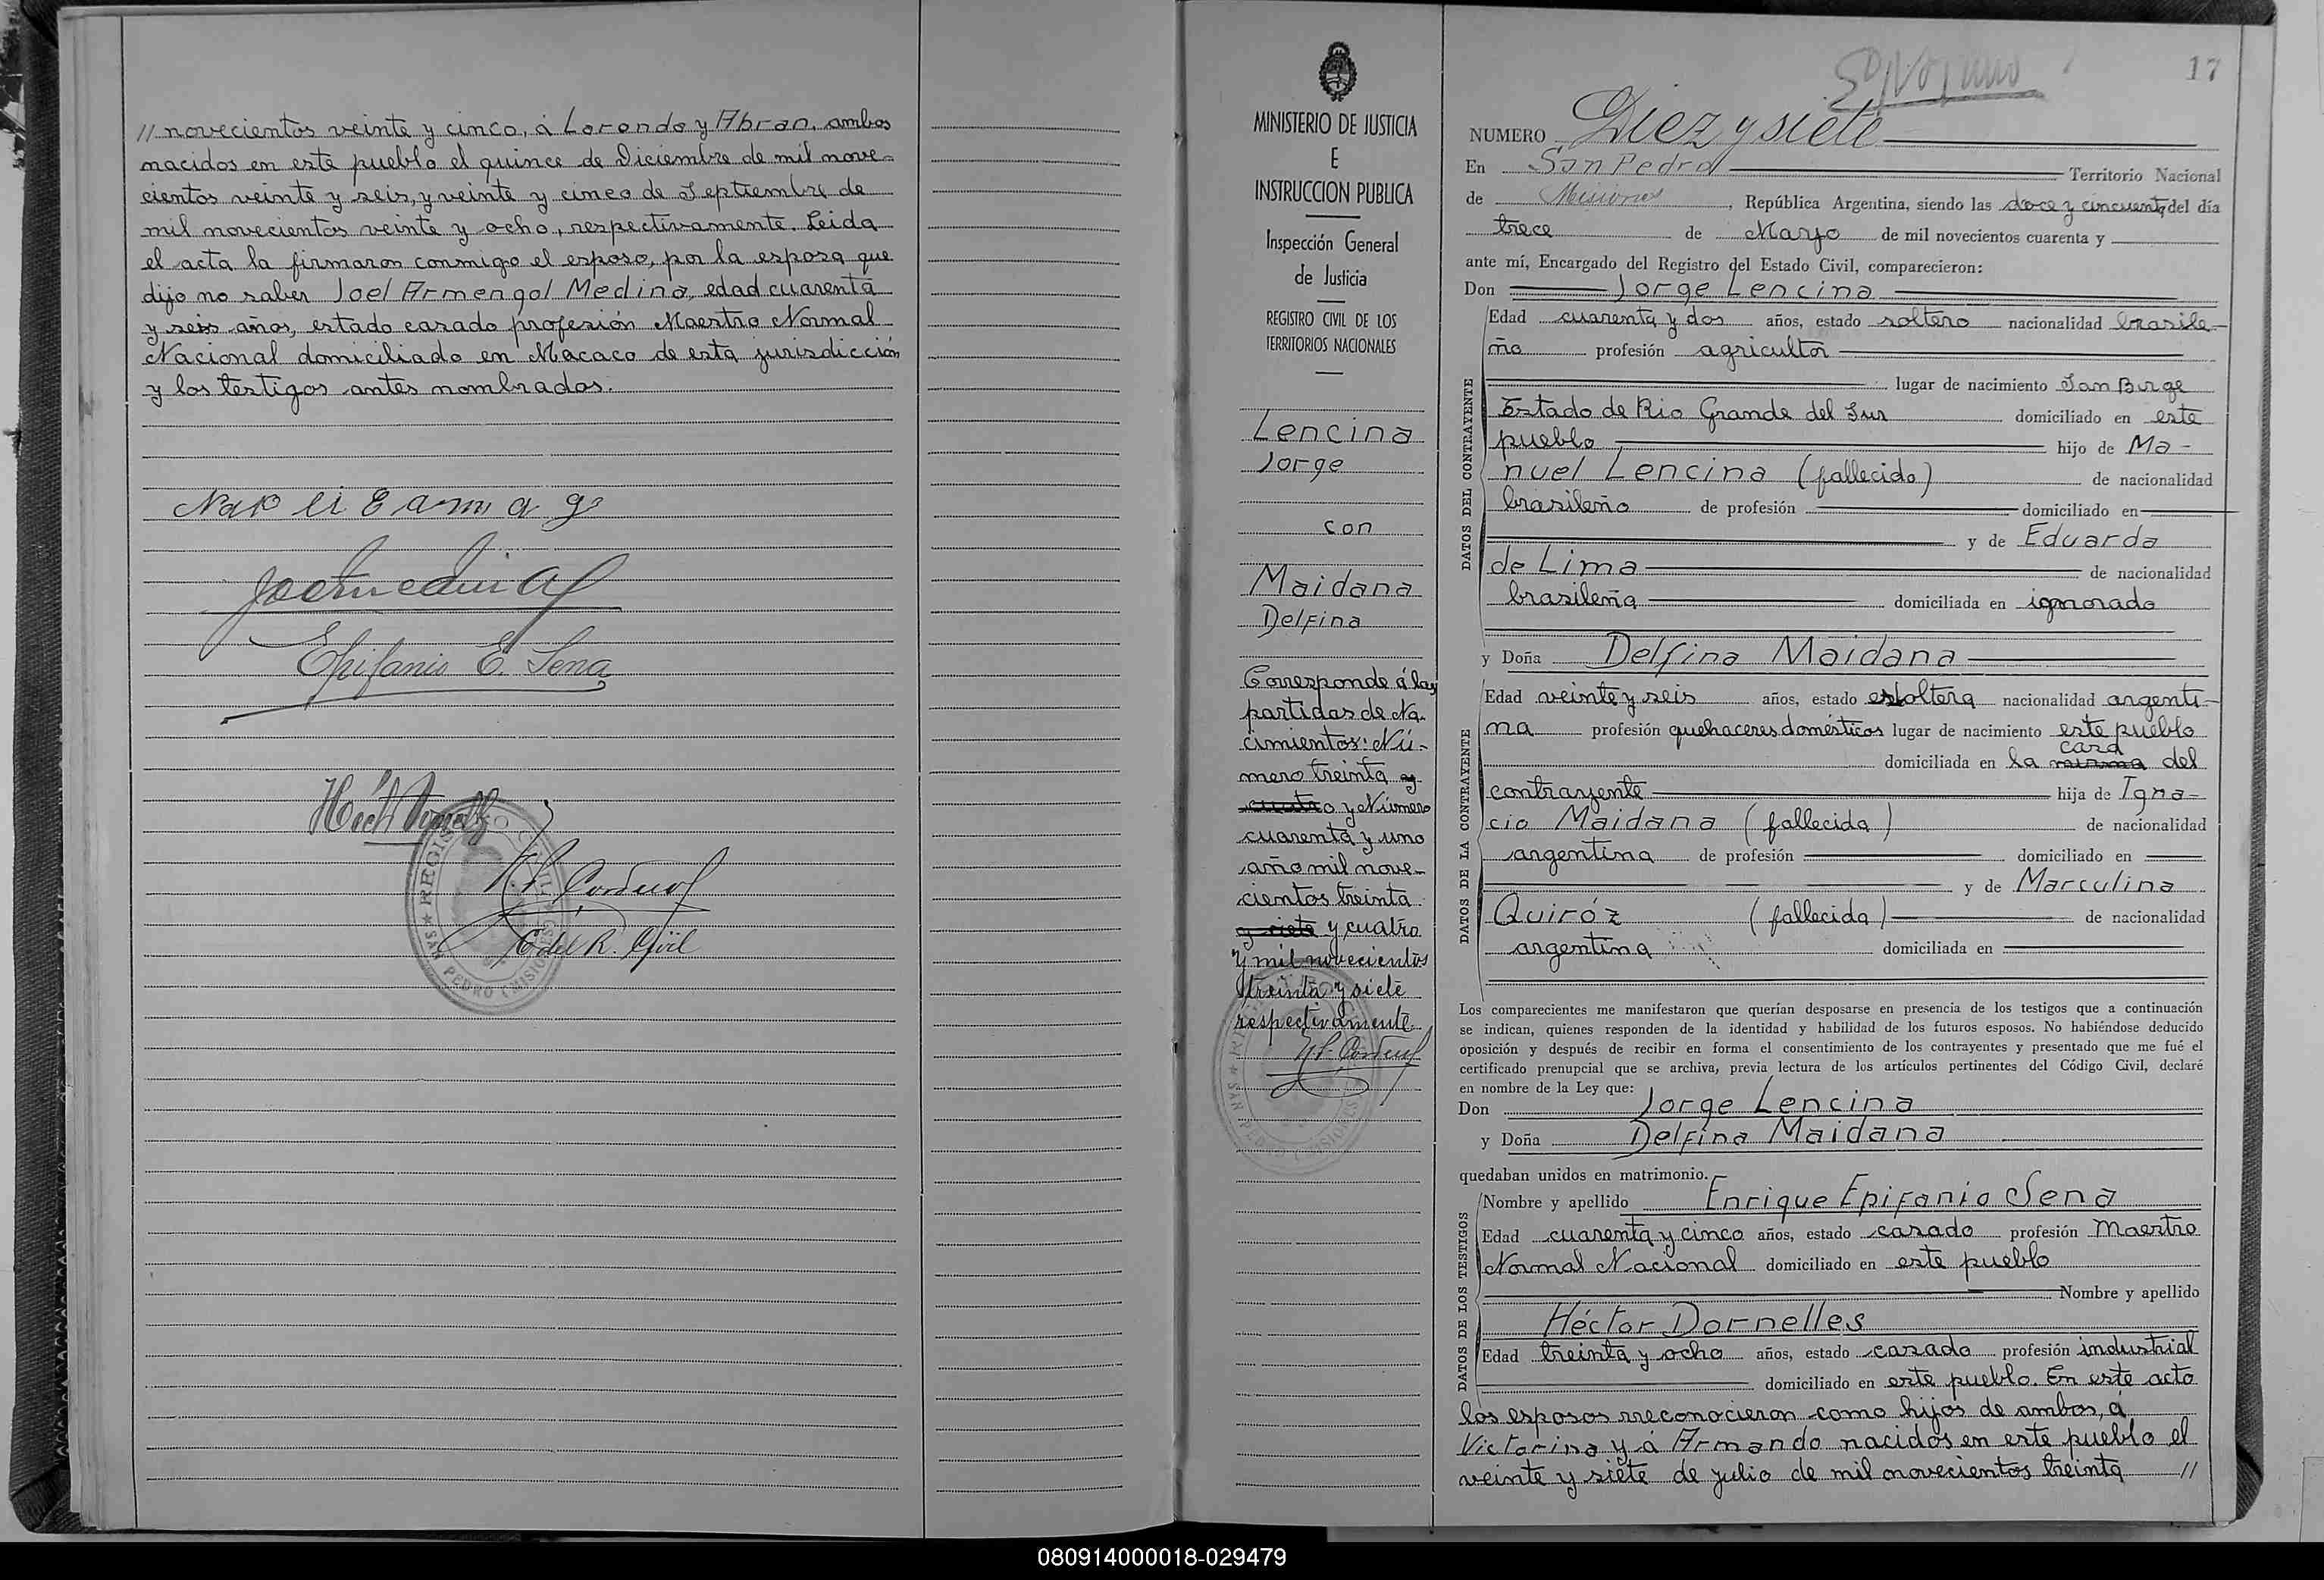 // novecientos veinte y cinco, á Lorenda y Abran, ambos
nacidos en este pueblo el quince de Diciembre de mil nove-
cientos veinte y seis, y veinte y cinco de Septiembre de
mil novecientos veinte y ocho, respectivamente. Leida
el acta la firmaron conmigo el esposo, por la esposa que
dijo no saber Joel Armengol Medina, edad cuarenta
y seis años, estado casado profesión Maestro Normal
Nacional domiciliado en Macaco de esta jurisdicción
y los testigos antes nombrados.
Epifanio E. Sena
E. del R. Civil
REGISTRO CIVIL
SAN PEDRO (MISIONES)
MINISTERIO DE JUSTICIA
E
INSTRUCCION PUBLICA
Inspección General
de Justicia
REGISTRO CIVIL DE LOS
TERRITORIOS NACIONALES
Lencina
Jorge
con
Maidana
Delfina
Corresponde á las
partidas de Na-
cimientos: Nú-
mero treinta y
cuatro y Número
cuarenta y uno
año mil nove-
cientos treinta
y siete y cuatro
y mil novecientos
treinta y siete
respectivamente.
17
NUMERO Diez y siete
En San Pedro Territorio Nacional
de Misiones, República Argentina, siendo las doce y cincuenta del día
trece de Mayo de mil novecientos cuarenta y
ante mí, Encargado del Registro del Estado Civil, comparecieron:
Don Jorge Lencina
DATOS DEL CONTRAYENTE
Edad cuarenta y dos años, estado soltero nacionalidad brasile-
ño profesión agricultor
lugar de nacimiento San Burge
Estado de Rio Grande del Sur domiciliado en este
pueblo hijo de Ma-
nuel Lencina (fallecido) de nacionalidad
brasileño de profesión domiciliado en
y de Eduarda
de Lima de nacionalidad
brasileña domiciliada en ignorado
y Doña Delfina Maidana
DATOS DE LA CONTRAYENTE
Edad veinte y seis años, estado soltera nacionalidad argenti-
na profesión quehaceres domésticos lugar de nacimiento este pueblo
casa
domiciliada en la misma del
contrayente hija de Igna-
cio Maidana (fallecida) de nacionalidad
argentina de profesión domiciliado en
y de Marculina
Quiróz (fallecida) de nacionalidad
argentina domiciliada en
Los comparecientes me manifestaron que querían desposarse en presencia de los testigos que a continuación
se indican, quienes responden de la identidad y habilidad de los futuros esposos. No habiéndose deducido
oposición y después de recibir en forma el consentimiento de los contrayentes y presentado que me fué el
certificado prenupcial que se archiva, previa lectura de los artículos pertinentes del Código Civil, declaré
en nombre de la Ley que:
Don Jorge Lencina
y Doña Delfina Maidana
quedaban unidos en matrimonio.
DATOS DE LOS TESTIGOS
Nombre y apellido Enrique Epifanio Sena
Edad cuarenta y cinco años, estado casado profesión Maestro
Normal Nacional domiciliado en este pueblo
Nombre y apellido
Héctor Dornelles
Edad treinta y ocho años, estado casado profesión industrial
domiciliado en este pueblo. En este acto
los esposos rreconocieron como hijos de ambos, á
Victorina y á Armando nacidos en este pueblo el
veinte y siete de julio de mil novecientos treinta //
080914000018-029479